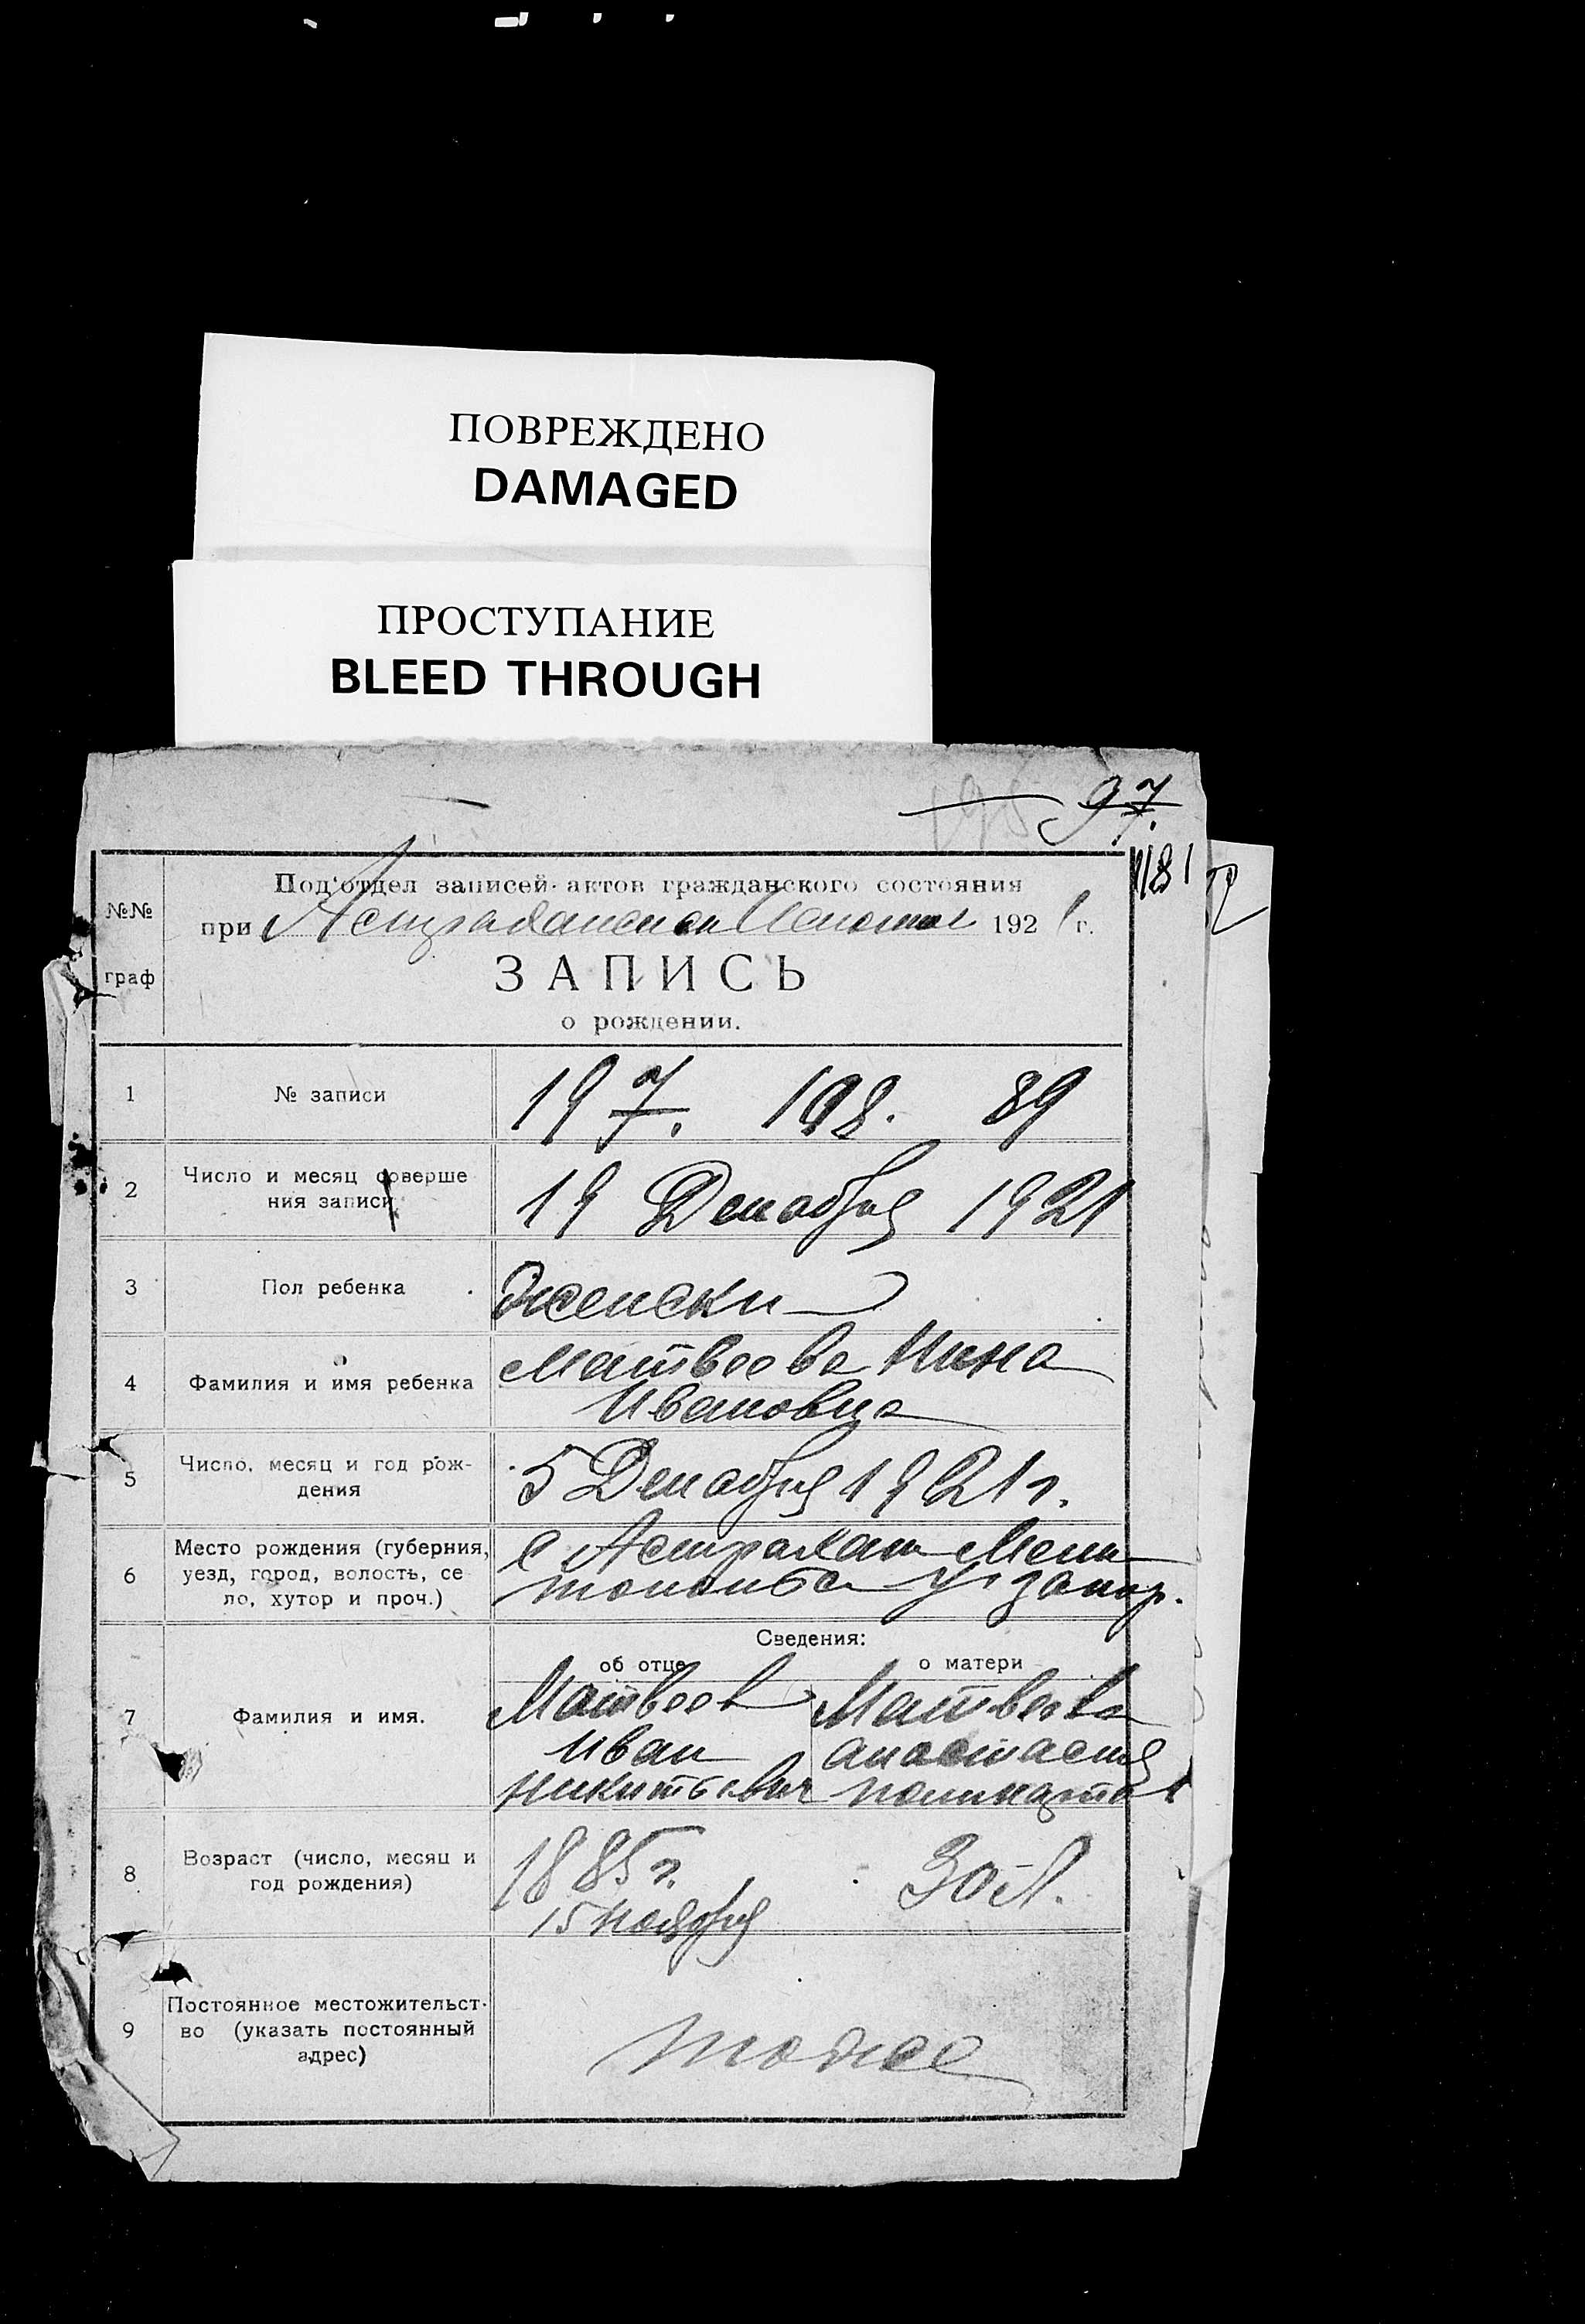 ПОВРЕЖДЕНО
DAMAGED
ПРОСТУПАНИЕ
BLEED THROUGH
195 97.
181
Под‘отдел записей актов гражданского состояния
№№ при Астраханском 1921 г.
граф ЗАПИСЬ
о рождении.
1 № записи 197. 198. 89
2 Число и месяц соверше
ния записи 19 Декабря 1921
3 Пол ребенка женски
4 Фамилия и имя ребенка Матвеева Нина
Ивановна
5 Число, месяц и год рож-
дения 5 Декабря 1921 г.
6 Место рождения (губерния,
уезд, город, волость, се
ло, хутор и проч.)
с Астрахан Мели
топольск у запор.
Сведения:
об отце о матери
7 Фамилия и имя.
Матвеев Матвеева
Иван анастасия
Никитьевич поликарпов
8 Возраст (число, месяц и
год рождения)
1885 г. 30 л.
15 ноября
9 Постоянное местожительст-
во (указать постоянный
адрес)
тоже